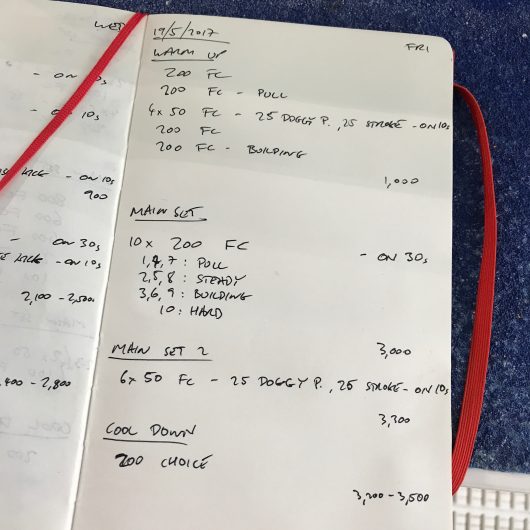 WED
- ON 10s
- ON 10s
KICK - ON 10s
900
- ON 30s
KICK - ON 10s
2,100 - 2,500
,400 - 2,800
19/5/2017
FRI
WARM UP
200 FC
200 FC - PULL
4x 50 FC - 25 DOGGY P., 25 STROKE - ON 10s
200 FC
200 FC - BUILDING
1,000
MAIN SET
10x 200 FC - ON 30s
1,4,7: PULL
2,5,8: STEADY
3,6,9: BUILDING
10: HARD
3,000
MAIN SET 2
6x 50 FC - 25 DOGGY P., 25 STROKE - ON 10s
3,300
COOL DOWN
200 CHOICE
3,300 - 3,500